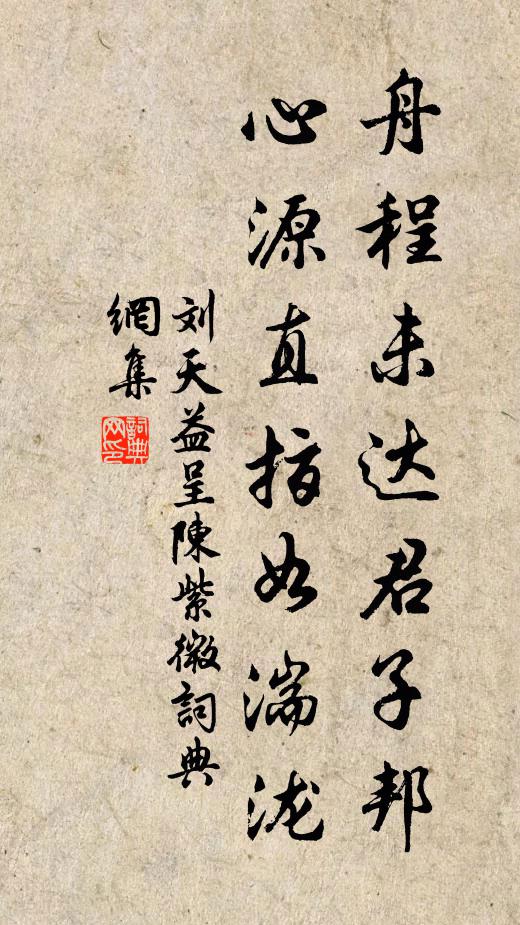 舟程未达君子邦
心源直指如湍泷
刘天益呈陳紫微詞典
網集
詞典
网印